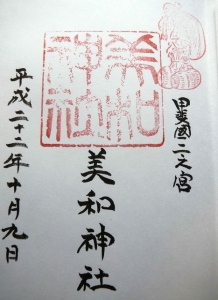 甲斐國二之宮
美和神社
平成二十二年十月九日